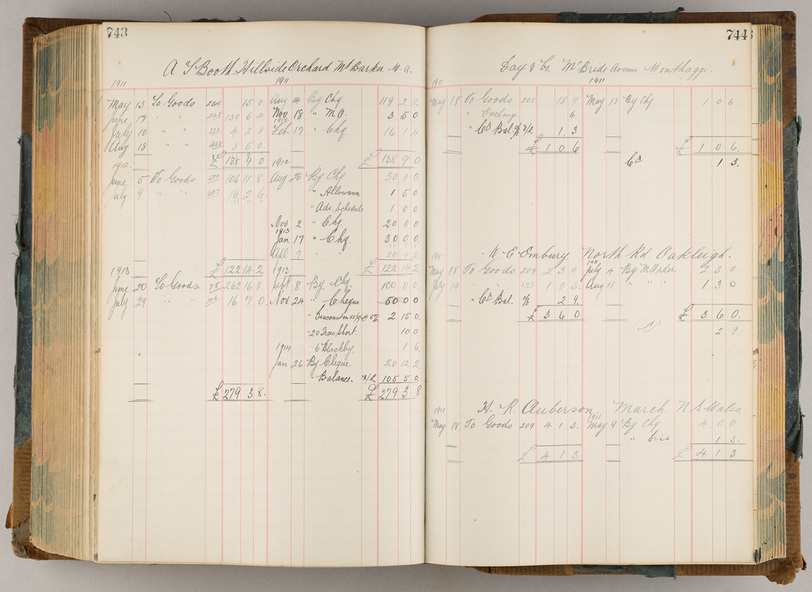 743
A T Booth Hillside Orchard Mt Barker W.a.
1911 1911
May 13 To Goods 15 0 Aug 14 By Chq 119 2
June 19 " " 130 6 4 Nov 18 " MO 3 5 0
July 10 " " 4 2 8 Feb 17 " Chq 16 1
Aug 18 " " 3 5 0
£ 138 9 0 1912 £ 138 9 0
June 5 To Goods 106 11 8 Aug 26 By Chq 50 0 0
July 9 " " " Allowance 1 5 0
" Ads Schedule 1 0 0
Nov 2 " Chq 20 0 0
1913
Jan 17 " Chq. 30 0 0
7 "
1913 £ 122 14 2 1913 £ 122 14 2
June 20 To Goods 262 16 8 Sept 8 By Chq. 100 0 0
July 29 " " 16 7 0 Nov 24 " Cheque 50 0 0
" Discount 2 15 0
" 20 Trees Short. 10 0
1914 " 6 Blackby. 1 6
Jan 26 By Cheque 20 12 2
" Balance. 105 5 0
£ 279 3 8. £ 279 3 8
744
Day & Co. McBride Avenue Wonthaggi.
1911
May 18 To Goods 18 9 May 17 By Chq 1 0 6
" Exchange 6
" Cd Bal. 1 3
£ 1 0 6 £ 1 0 6
Cd 1 3.
W. E Embury North Rd Oakleigh.
May 18 To Goods 209 2 3 0 July 4 By M Order. 2 3 0
July 19 " " 1 0 3 Aug 18 " " " 1 3 0
" Cd Bal. 2 9
£ 3 6 0 £ 3 6 0
2 9
H. R. Auberson, March N. S. Wales
1911 1911
May 18 To Goods 209 4 1 3 May 9 By Chq 4 0 0
" 1 3
£ 4 1 3 £ 4 1 3